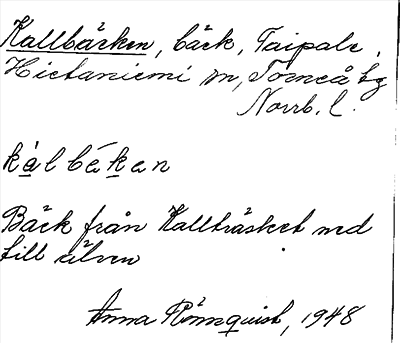 Kallbäcken, bäck, Taipale,
Hietaniemi sn, Torneå tg
Norrb. l.
kàlbékan
Bäck från Kallträsket ned
till älven
Anna Rönnquist, 1948